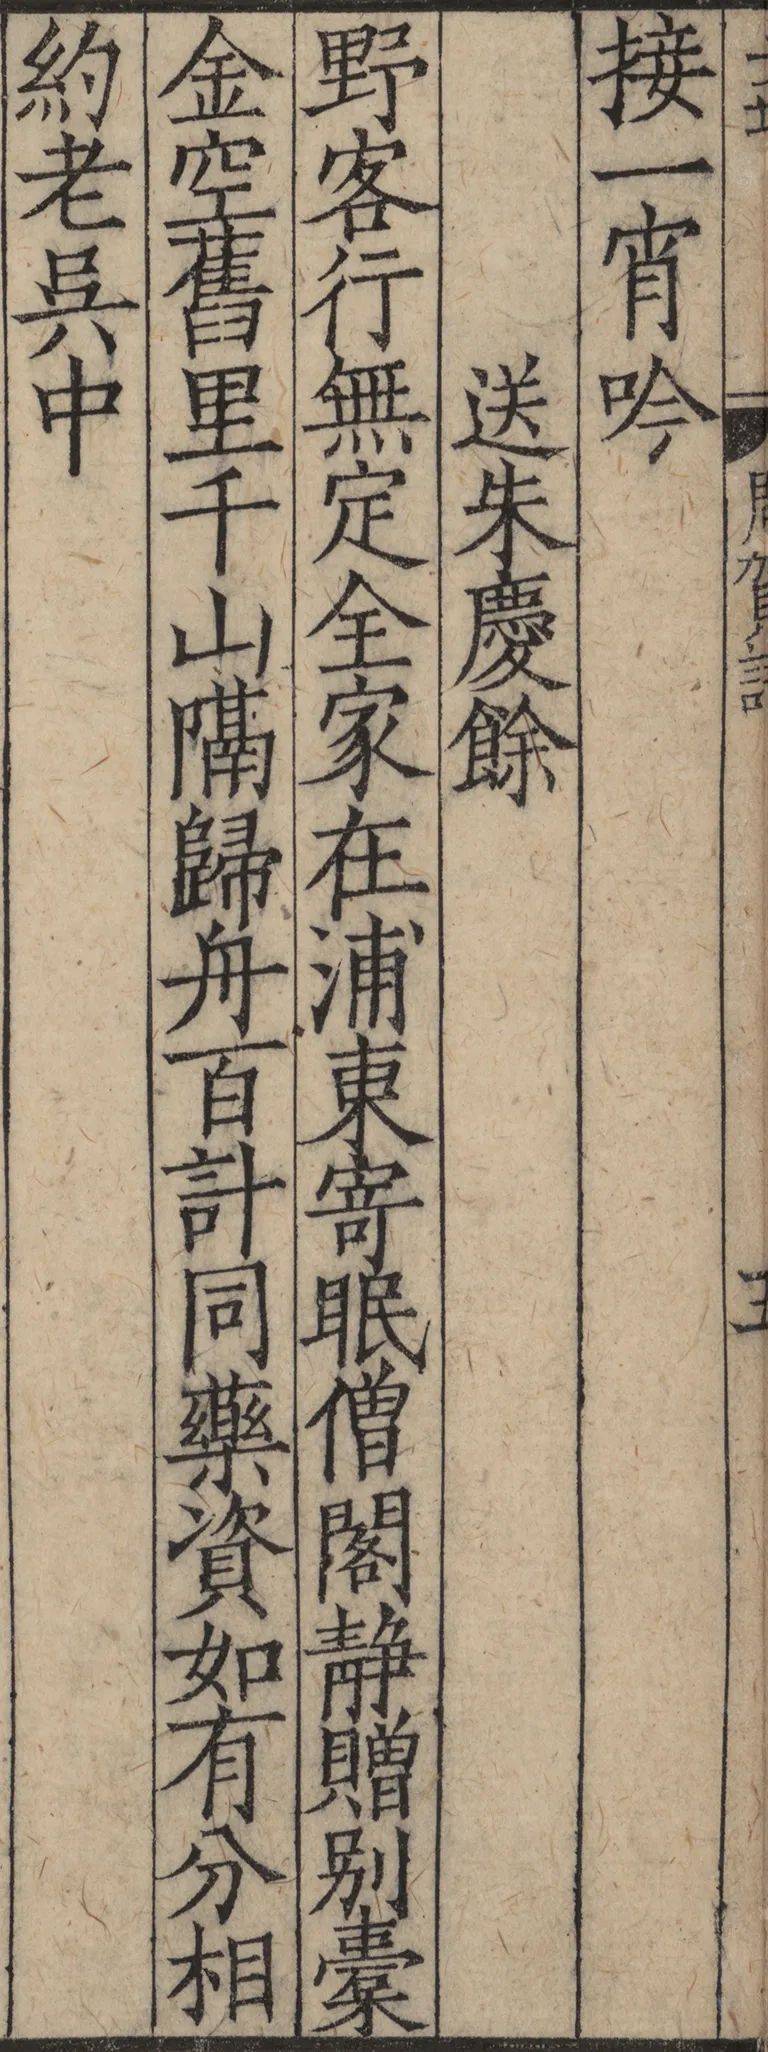 接一宵吟
送朱慶餘
野客行無定全家在浦東寄眠僧閣静贈别槖
金空舊里千山隔歸舟百計同藥資如有分相
約老吳中